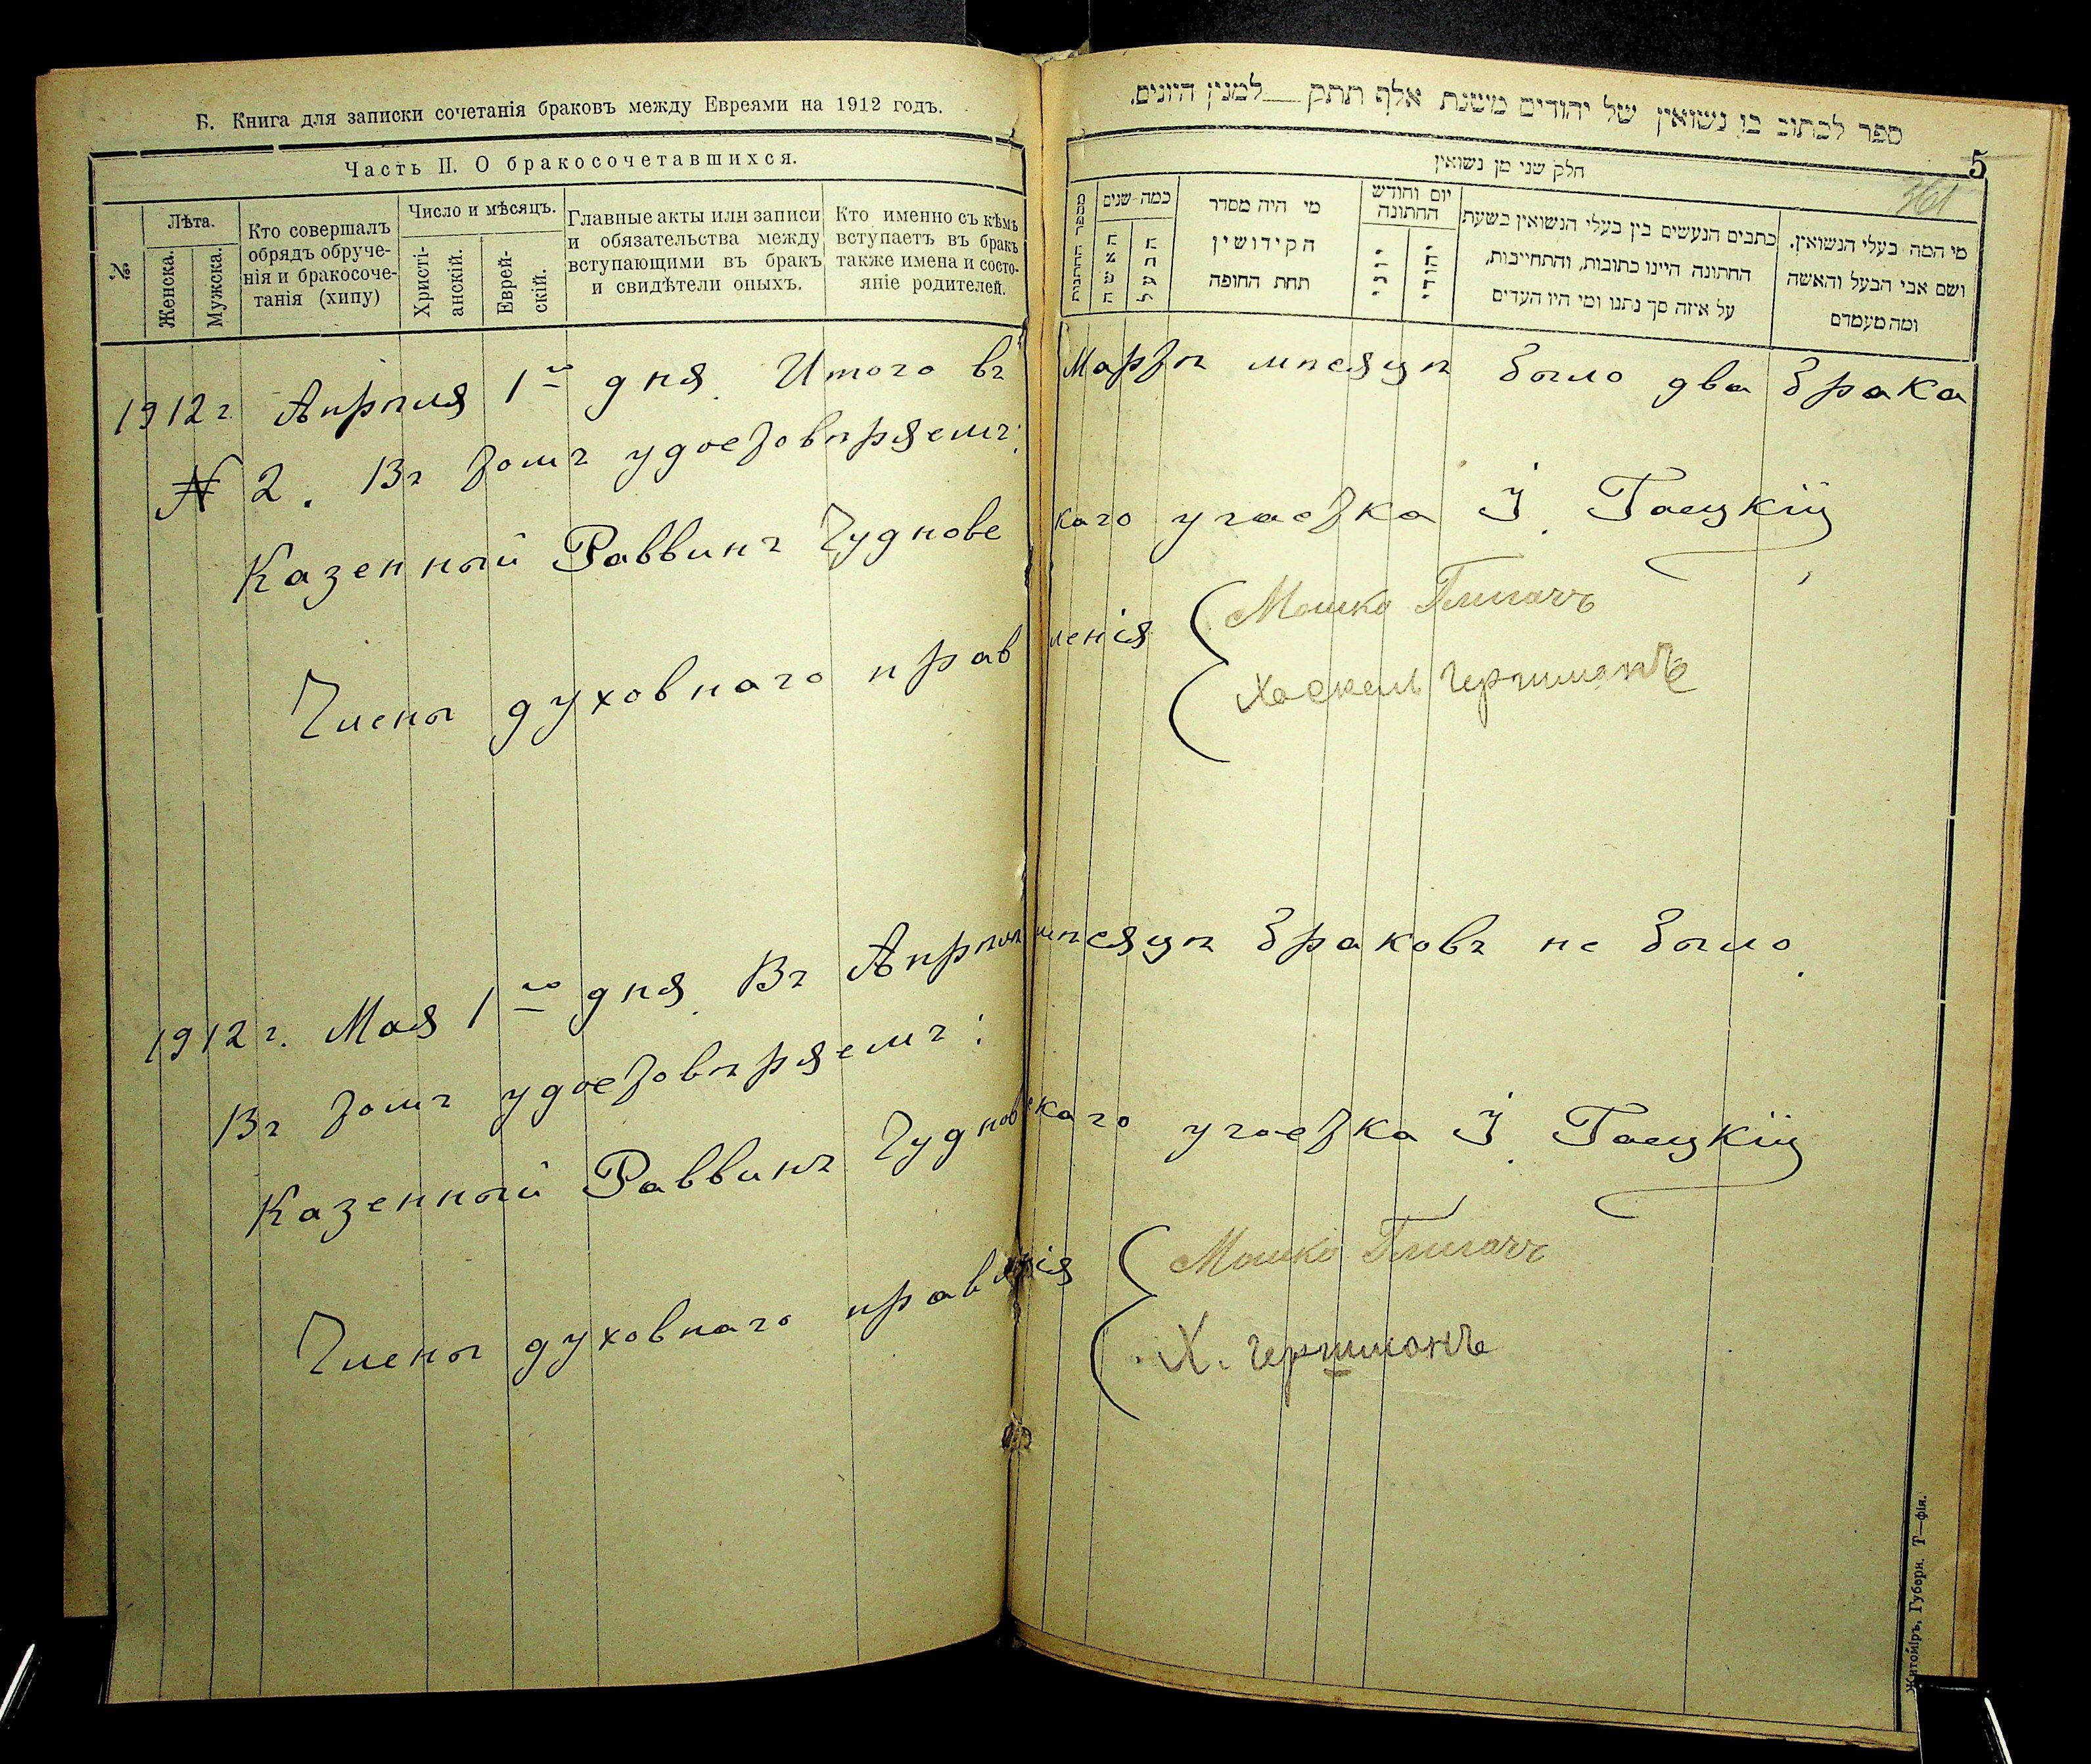 Б. Книга для записки сочетанія браковъ между Евреями на 1912 годъ.
Часть II. О бракосочетавшихся.
№
Лѣта.
Женска.
Мужска.
Кто совершалъ
обрядъ обруче-
нія и бракосоче-
танія (хипу)
Число и мѣсяцъ.
Христі-
анскій.
Еврей-
скій.
Главные акты или записи
и обязательства между
вступающими въ бракъ
и свидѣтели оныхъ.
Кто именно съ кѣмъ
вступаетъ въ бракъ
также имена и состо-
яніе родителей.
ספר לכתוב בו נשואין של יהודים משנת אלף תתק __ למנין היונים.
5
חלק שני מן נשואין
מספר החתונות
כמה שנים
האשה
הבעל
מי היה מסדר
הקידושין
תחת החופה
יום וחודש
החתונה
יוני
יהודי
כתבים הנעשים בין בעלי הנשואין בשעת
החתונה היינו כתובות, והתחייבות,
על איזה סך נתנו ומי היו העדים
מי המה בעלי הנשואין.
ושם אבי הבעל והאשה
ומה מעמדם
1912 г. Апрѣля 1го дня. Итого въ Мартѣ мѣсяцѣ было два брака
№ 2. Въ томъ удостовѣряемъ:
Казенный Раввинъ Чудновскаго участка І. Гаецкій
Члены духовнаго правленія
Мошко
Хаскель Гершманъ
1912 г. Мая 1го дня. Въ Апрѣлѣ мѣсяцѣ браковъ не было.
Въ томъ удостовѣряемъ:
Казенный Раввинъ Чудновскаго участка І. Гаецкій
Члены духовнаго правленія
Мошко
Х. Гершманъ
Житоміръ, Губерн. Т—фія.